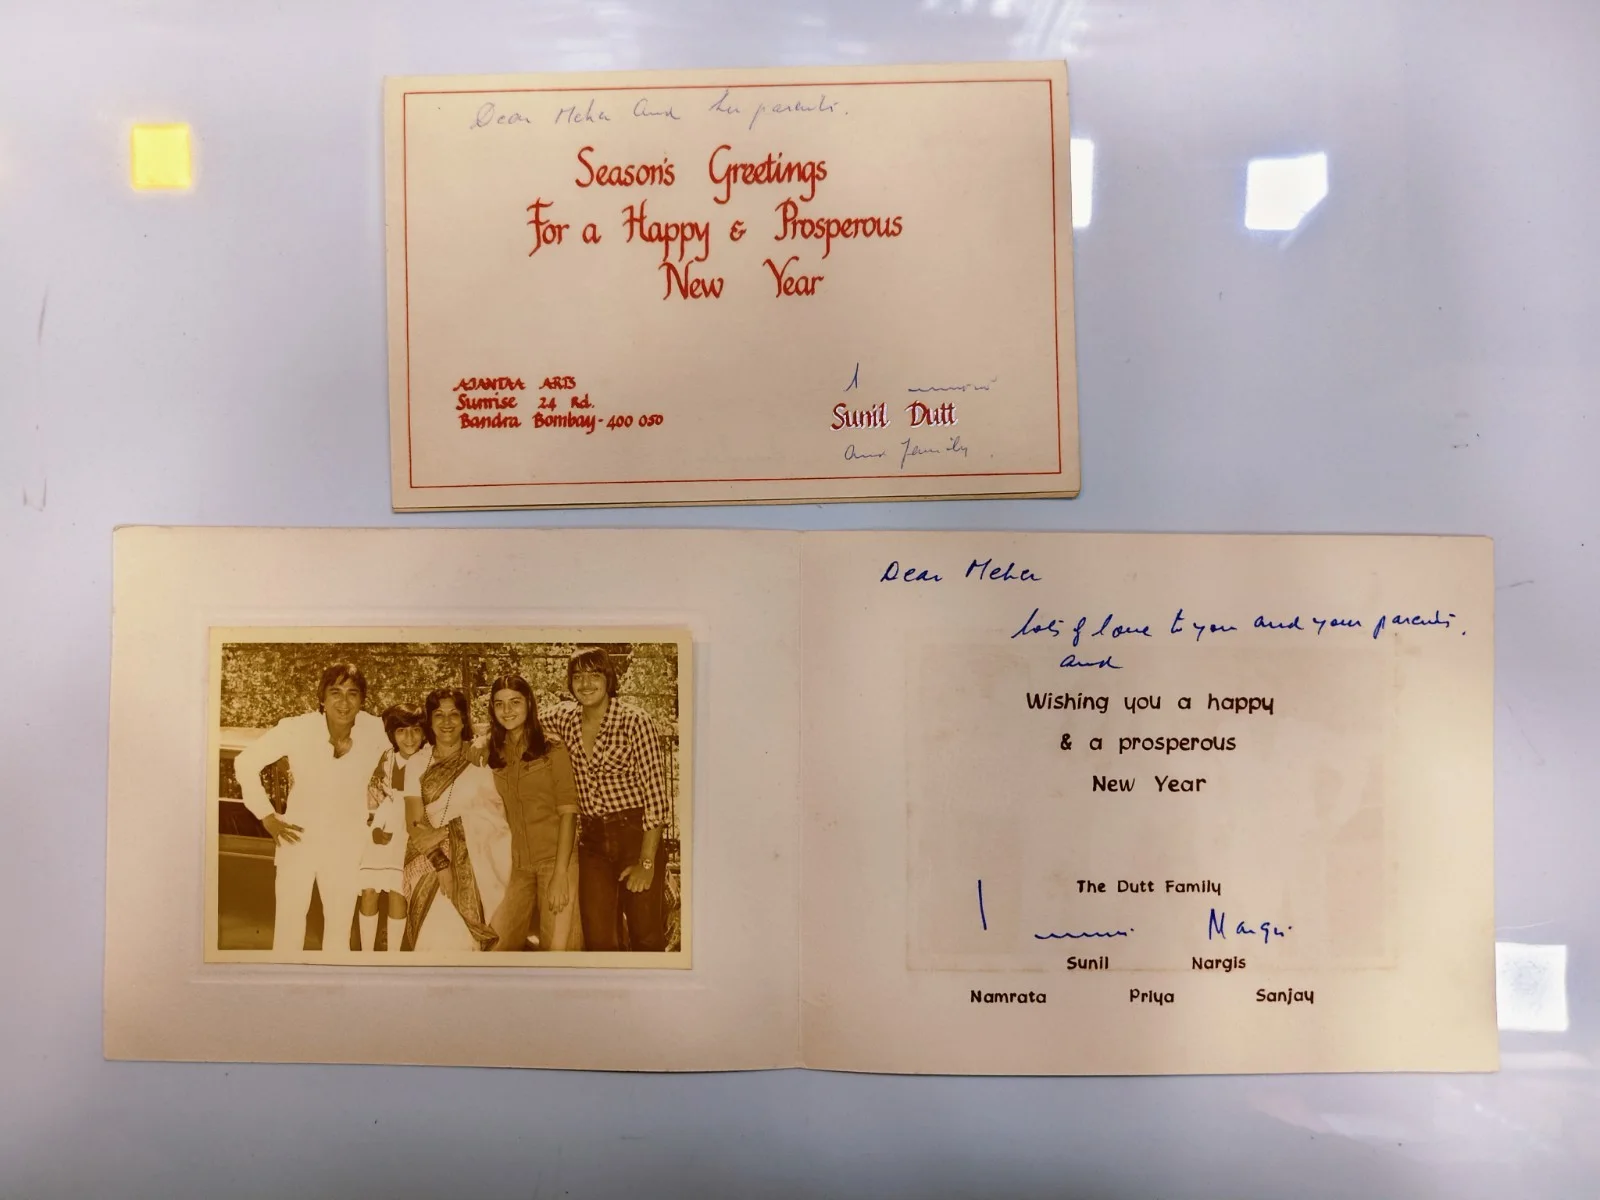 Dear Meher and her parents.
Season's Greetings
For a Happy & Prosperous
New Year
AJANTAA ARTS
Sunrise 24 Rd.
Bandra Bombay - 400 050
Sunil Dutt
and family.
Dear Meher
lots of love to you and your parents.
and
Wishing you a happy
& a prosperous
New Year
The Dutt Family
Nargis
Sunil Nargis
Namrata Priya Sanjay